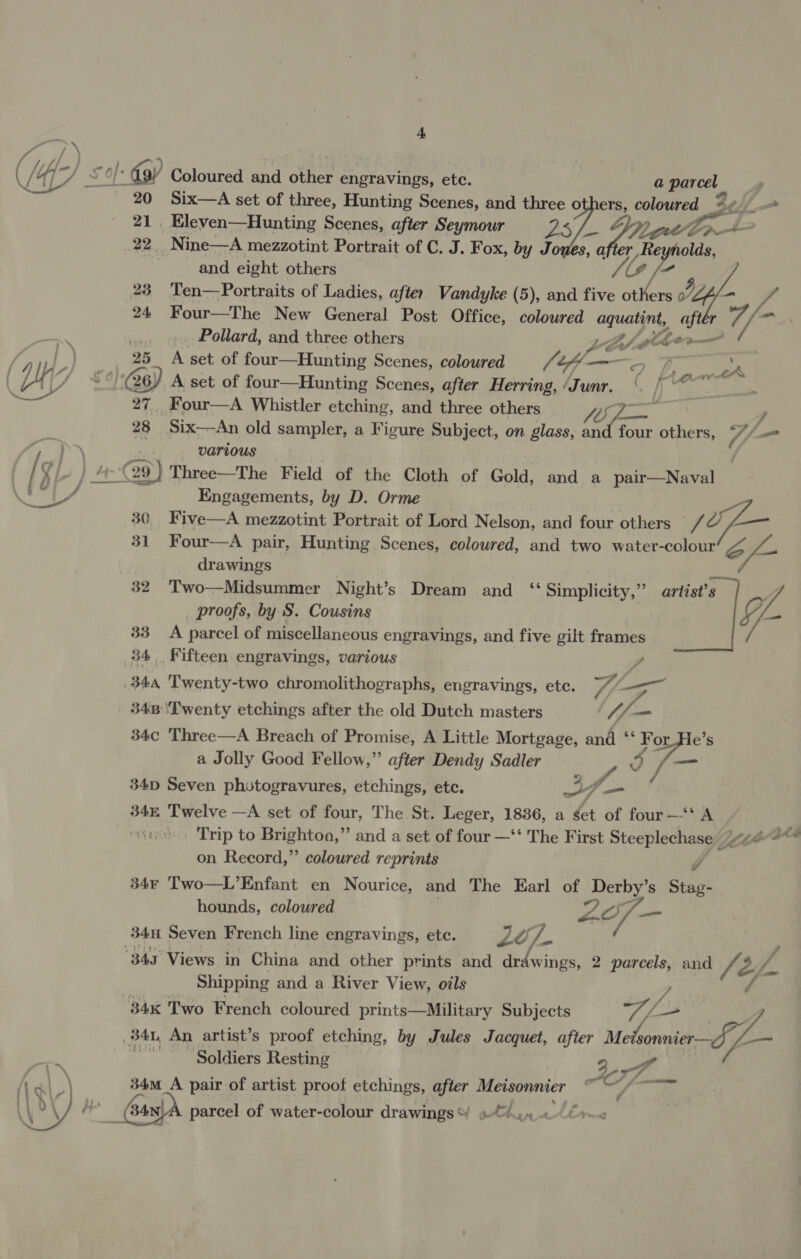 4
14/- 50/- 19 Coloured and other engravings, etc. a parcel
20 Six—A set of three, Hunting Scenes, and three others, coloured
21 Eleven—Hunting Scenes, after Seymour 25/-
22 Nine—A mezzotint Portrait of C. J. Fox, by Jones, after Reynolds,
and eight others
23 Ten—Portraits of Ladies, after Vandyke (5), and five others
24 Four—The New General Post Office, coloured aquatint, after 7/-
Pollard, and three others
25 A set of four—Hunting Scenes, coloured
26 A set of four—Hunting Scenes, after Herring, Junr.
27 Four—A Whistler etching, and three others
28 Six—An old sampler, a Figure Subject, on glass, and four others, 7/-
various
29 Three—The Field of the Cloth of Gold, and a pair—Naval
Engagements, by D. Orme
30 Five—A mezzotint Portrait of Lord Nelson, and four others
31 Four—A pair, Hunting Scenes, coloured, and two water-colour
drawings
32 Two—Midsummer Night's Dream and “Simplicity,” artist's
proofs, by S. Cousins
33 A parcel of miscellaneous engravings, and five gilt frames
34 Fifteen engravings, various
34A Twenty-two chromolithographs, engravings, etc. 7/-
34B Twenty etchings after the old Dutch masters
34C Three—A Breach of Promise, A Little Mortgage, and “For He's
a Jolly Good Fellow,” after Dendy Sadler
34D Seven photogravures, etchings, etc.
34E Twelve—A set of four, The St. Leger, 1836, a set of four—“A
Trip to Brighton,” and a set of four—“The First Steeplechase
on Record,” coloured reprints
34F Two—L'Enfant en Nourice, and The Earl of Derby's Stag-
hounds, coloured 20/-
34H Seven French line engravings, etc. 20/-
34J Views in China and other prints and drawings, 2 parcels, and 12/-
Shipping and a River View, oils
34K Two French coloured prints—Military Subjects 7/-
34L An artist's proof etching, by Jules Jacquet, after Meisonnier—
Soldiers Resting
34M A pair of artist proof etchings, after Meisonnier
34N A parcel of water-colour drawings